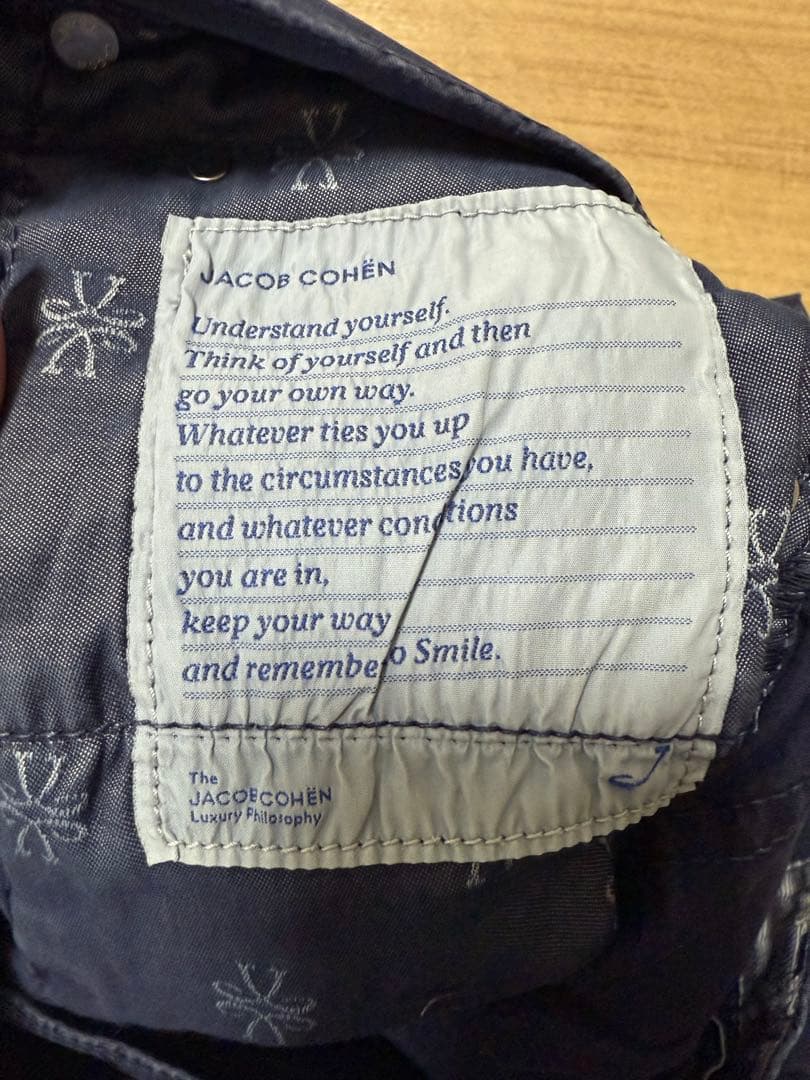 JACOB COHËN
Understand yourself.
Think of yourself and then
go your own way.
Whatever ties you up
to the circumstances you have,
and whatever conditions
you are in,
keep your way
and remember to Smile.
The
JACOBCOHËN
Luxury Philosophy
J